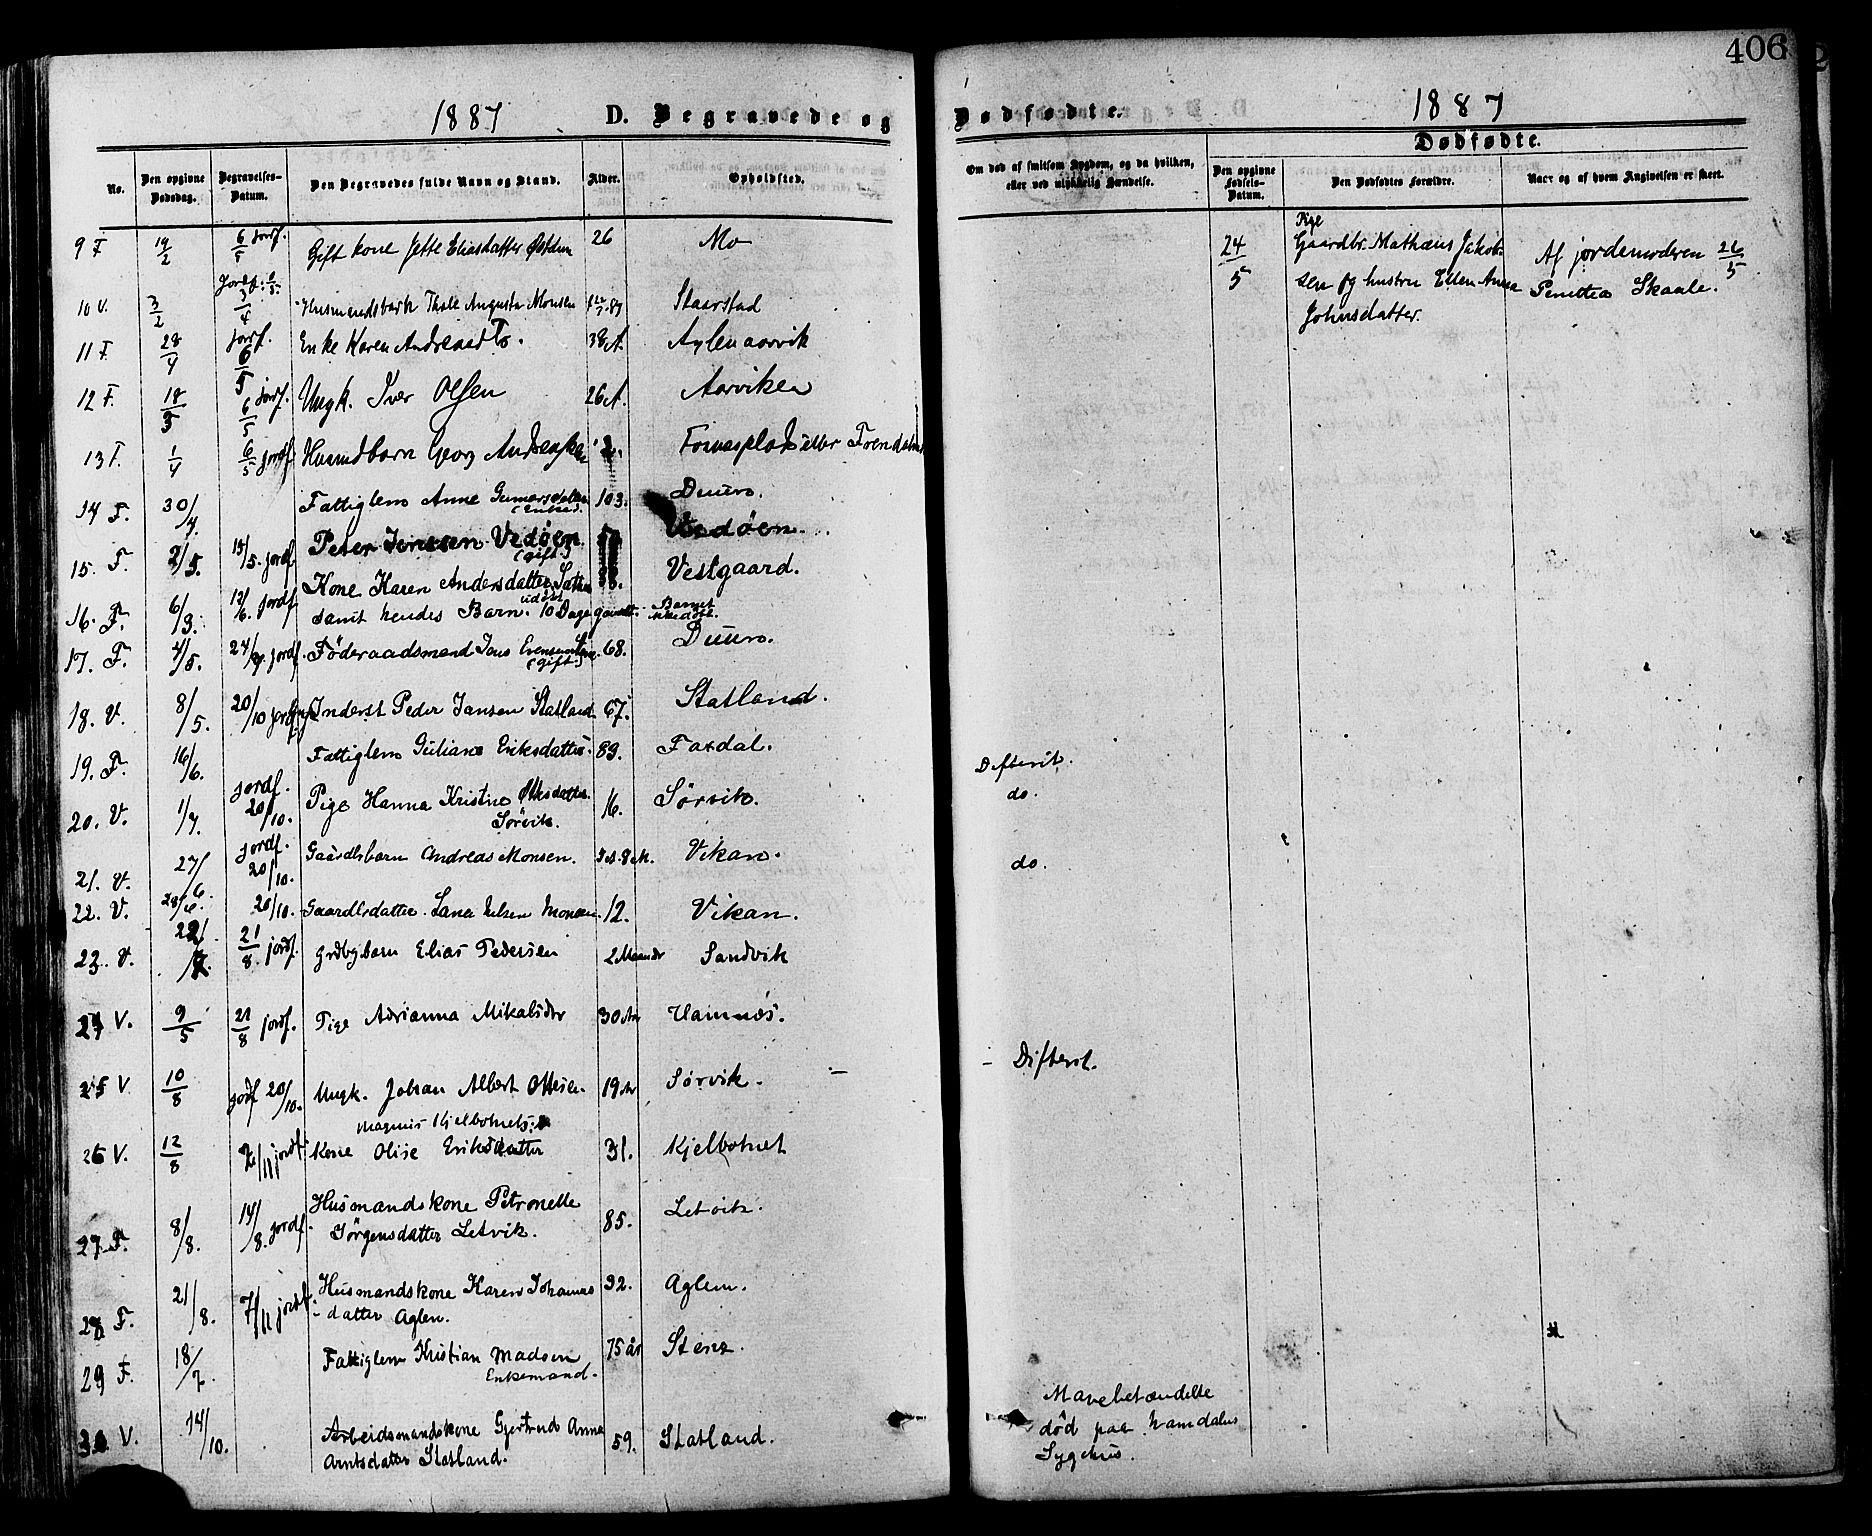 406
1887 D. Begravede og Dødfødte. 1887
No.
Den opgivne Dødsdag.
Begravelses-Datum.
Den Begravedes fulde Navn og Stand.
Alder.
Opholdssted.
Om død af smitsom Sygdom, og da hvilken, eller ved ulykkelig Hændelse.
Dødfødte.
Den opgivne Fødsels-Datum.
Den Dødfødtes Forældre.
Naar og af hvem Angivelsen er skeet.
9 F. 19/2 6/5 jordf. Gift kone Jette Eliasdatter 26 Mo
10 V. 3/2 3/4 Husmandsbarn Thale Augusta Monsen Staarstad
11 F. 28/4 jordf. 6/5 Enke Karen 38 A.
12 F. 18/3 6/5 jordf. Ungk. Iver Olsen 26 A. Aarviken
13 F. 1/4 6/5 jordf. Georg
14 F. 30/4. Fattiglem Anne Gunnarsdatter 103. Duun.
(Enke).
15. F. 2/5. 15/5. jordf Peter Jensen Vedøen Vedøen.
(gift.)
16. F. 6/3. 12/6. jordf Kone Karen Andersdatter Vestgaard.
samt hendes Barn. 10 Dage gammelt. Barnet
17. F. 4/5. jordf. Føderaadsmand 68. Duun.
(gift.)
18. V. 8/5. 20/10 jordf. Inderst Peder Jansen Statland 67. Statland.
19. F. 16/6. Fattiglem Juliane Eriksdatter 89. Fardal.
Difterit.
20. V. 1/7. jordf. 20/10. Pige Hanna Kristine 16. Sørvik.
Sørvik.
do.
21. V. 27/6. jordf. 20/10. Gaardbsbarn Andreas Monsen. 8 M. Vikan.
do.
22. V. 20/10. Gaardbrdatter Monsen. 12. Vikan.
23. V. 22/ 21/8. jordf. grdbgbarn Elias Pedersen 2 Maaneder Sandvik
24 V. 9/5 21/8 jordf. Pige Adrianna Mikalsdtr 30 Aar Hamnes.
25 V. 10/8 jordf 20/10. Ungk. Johan Albert Ottesen 19 Aar Sørvik.
- Difterit.
26 V. 12/8 /11 jordf. Magnus Kjelbotnets:
Kone Olise Eriksdatter 31. Kjelbotnet
27. F. 8/8. 14/8. jordf. Husmandskone Petronelle
Jørgensdatter Letvik. 85. Letvik.
28 F. 21/8. 7/11 jordf. Husmandskone Karen Johannes-
datter Aglen. 32. Aglem.
29 F. 18/7. Fattiglem Kristian Madsen 75 år
Enkemand.
30 V. 14/10. Arbeidsmandskone Gjertrud Anna
Arntsdatter Statland. 59. Statland.
Mavebetændelse
død paa Namdalens
Sygehus.
24/5
Pige
Gaardbr. Mathæus Jakob-
sen og hustru Ellen Anna
Johnsdatter.
Af jordemoderen 26/5
Penettea Skaale.